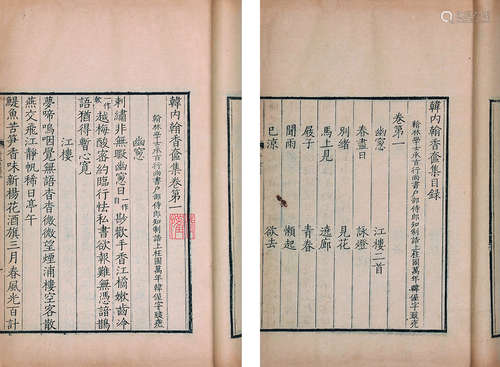 韓內翰香奩集目錄
翰林學士承旨行尚書户部侍郎知制誥上柱國萬年韓偓字致堯
卷第一
幽窻 江樓二首
春盡日 詠燈
別緒 見花
馬上見 遶廊
屐子 青春
聞雨 懶起
已涼 欲去
韓內翰香奩集卷第一
翰林學士承旨行尚書户部侍郎知制誥上柱國萬年韓偓字致堯
幽窻
刺繡非無暇幽窻自尠歡手香江橘嫩齒冷
越梅酸密約臨行怯私書欲報難無憑諳鵲
語猶得暫心寬
江樓
夢啼嗚咽覺無語杳杳微微望煙浦樓空客散
燕交飛江靜帆稀日亭午
鯷魚苦笋香味新楊花酒旗三月春風光百計